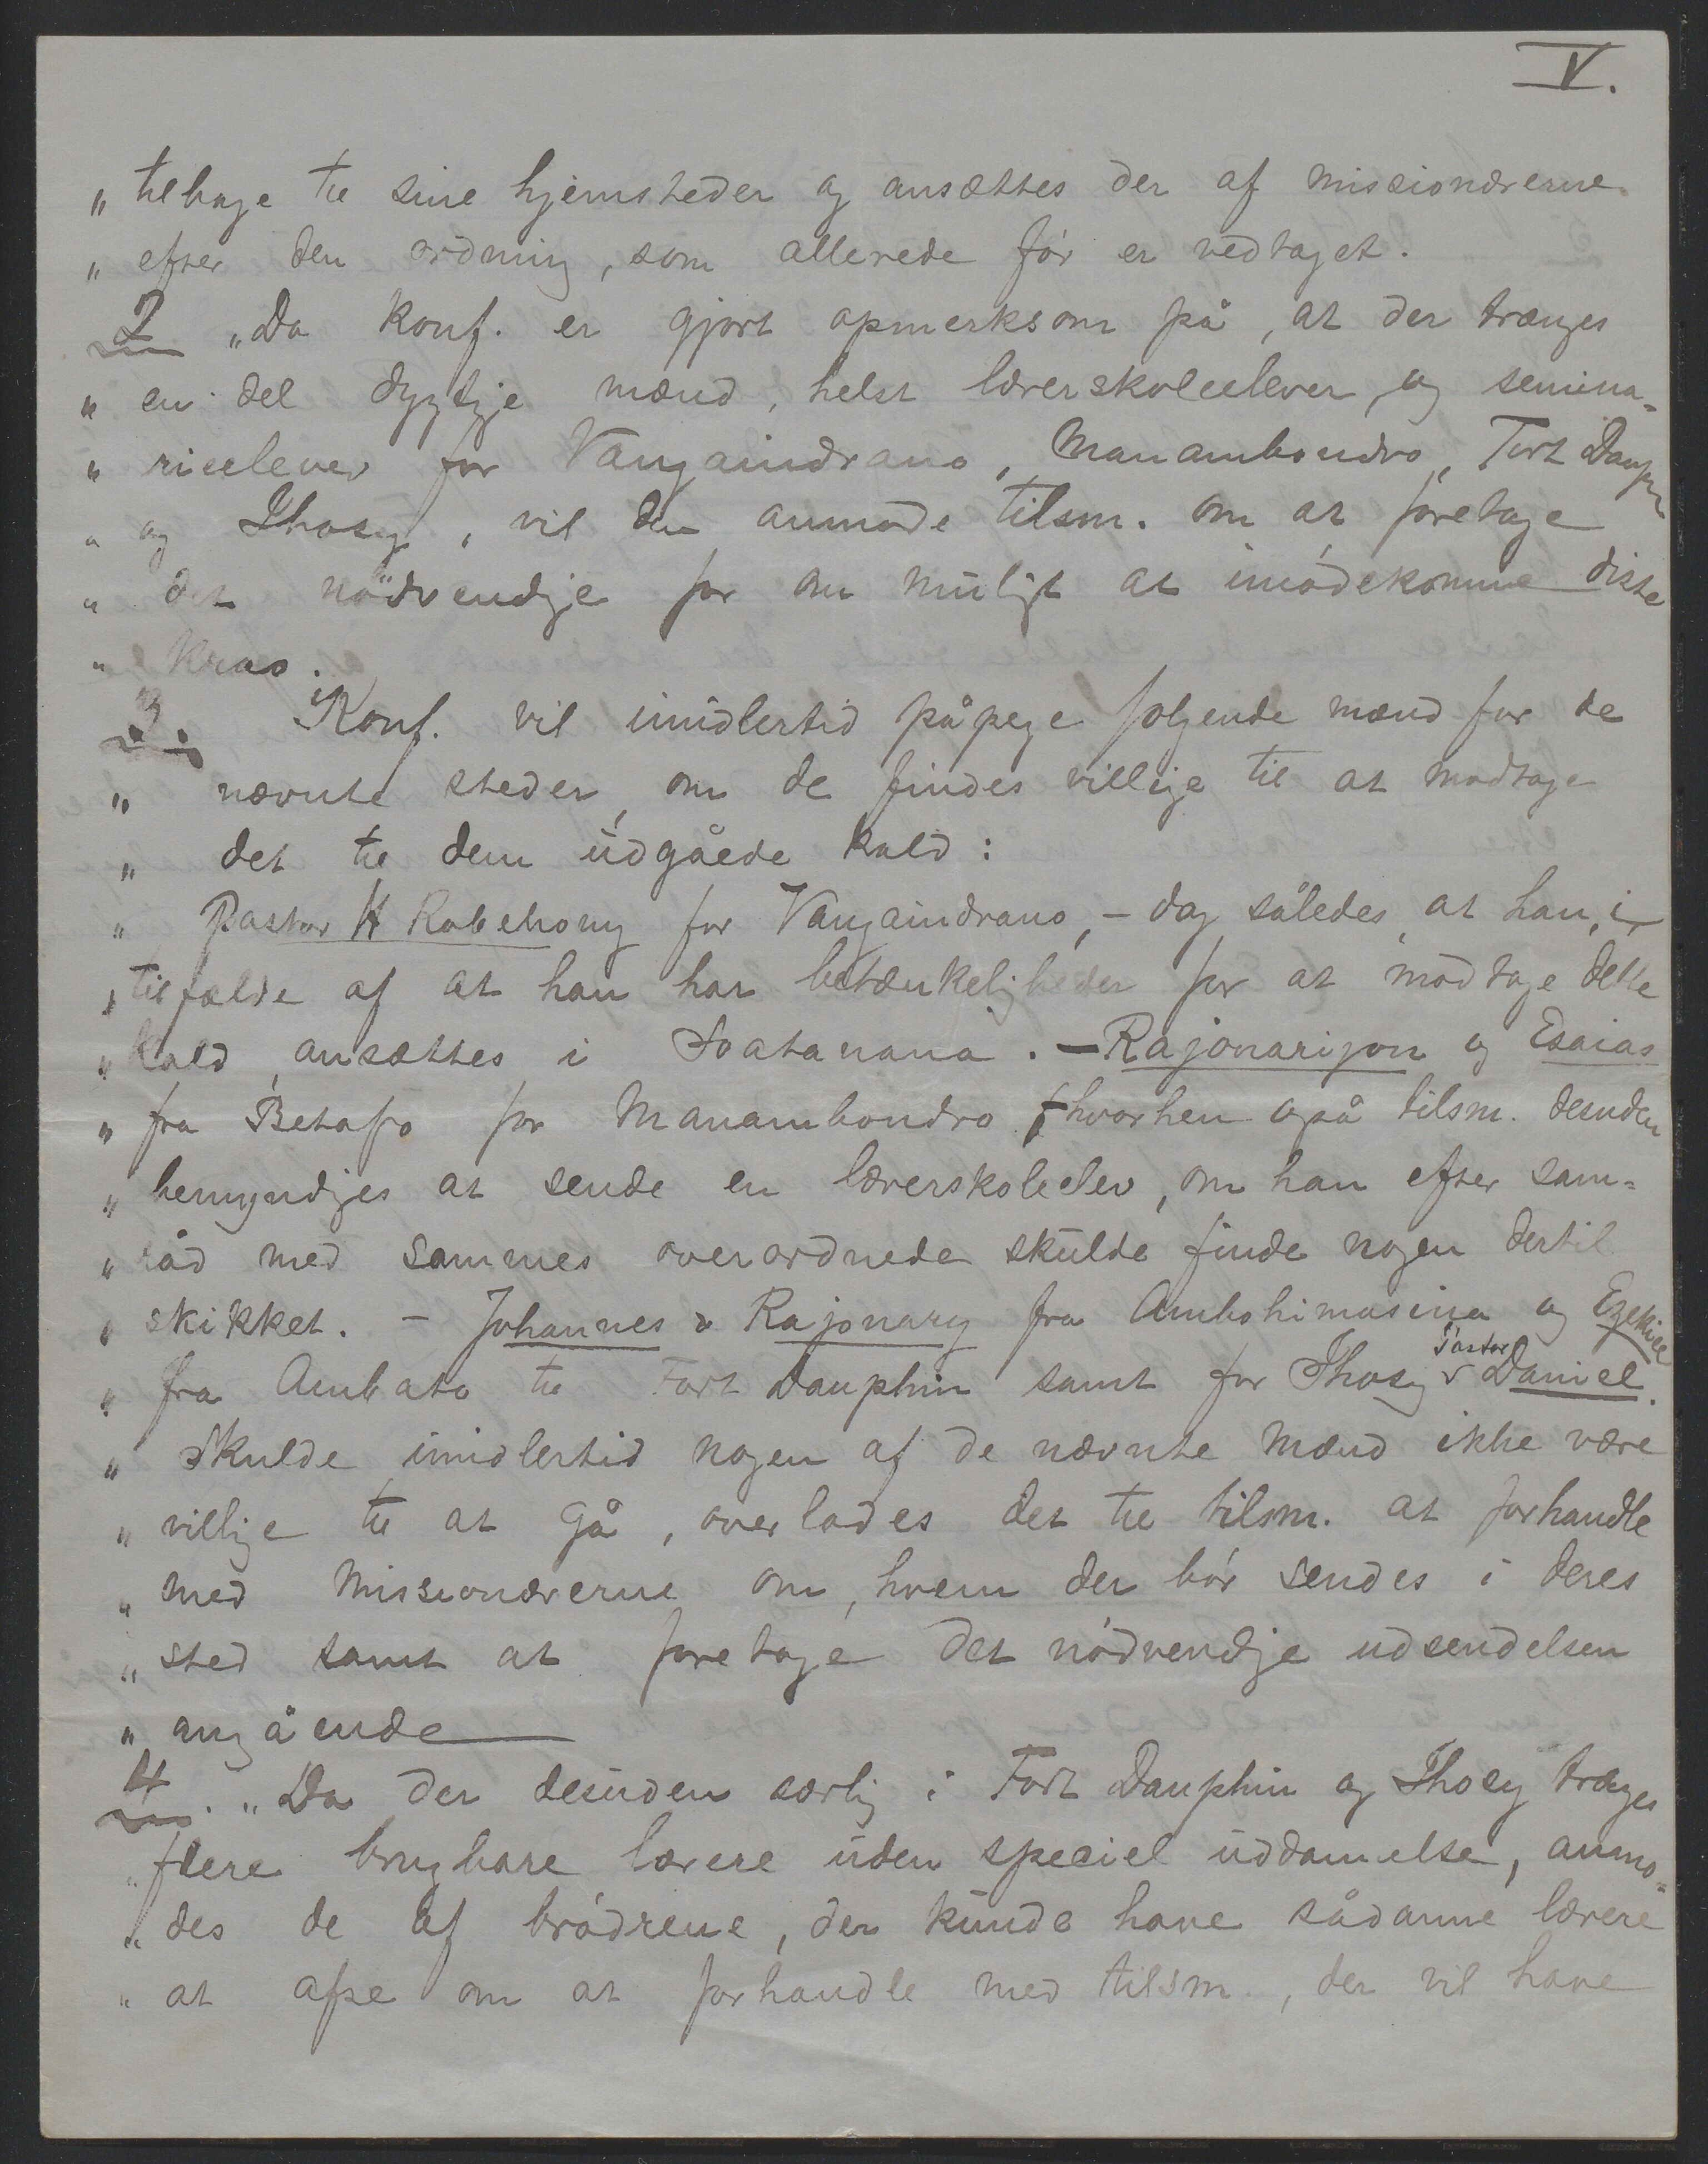 V.
„ tilbage til sine hjemsteder og ansættes der af missionærerne
„ efter den ordning, som allerede før er vedtaget.
2 „Da Konf. er gjort opmerksom på, at der trænges
„ en del dygtige mænd, helst lærerskoleelever og semina-
„ rieelever for Vangaindrano, Manambondro, Fort Dauph
„ og Ihosy, vil den anmode tilsm. om at foretage
„ det nødvendige for om muligt at imødekomme disse
„ krav.
3. Konf. vil imidlertid påpege følgende mænd for de
„ nævnte steder, om de findes villige til at modtage
„ det til dem udgåede kald:
„ Pastor H Rabehony for Vangaindrano, – dog således, at han, i
„ tilfælde af at han har betænkeligheder for at modtage dette
„ Kald, ansættes i Soatanana. – Rajonarizon og Esaias
„ fra Betafo for Manambondro, hvorhen også tilsm. desuden
„ bemyndiges at sende en lærerskoleelev, om han efter sam-
„ råd med sammes overordnede skulde finde nogen dertil
„ skikket. – Johannes & Rajonary fra Ambohimasina og Ezekiel
„ fra Ambato til Fort Dauphin samt for Ihosy Pastor Daniel.
„ Skulde imidlertid nogen af de nævnte mænd ikke være
„ villige til at gå, overlades det til tilsm. at forhandle
„ med missionærerne om, hvem der bør sendes i deres
„ sted samt at foretage det nødvendige udsendelsen
„ angående
4. „Da der desuden særlig i Fort Dauphin og Ihosy trænges
„ flere brugbare lærere uden speciel uddannelse, anmo-
„ des de af brødrene, der kunde have sådanne lærere
„ at afse om at forhandle med tilsm., der vil have